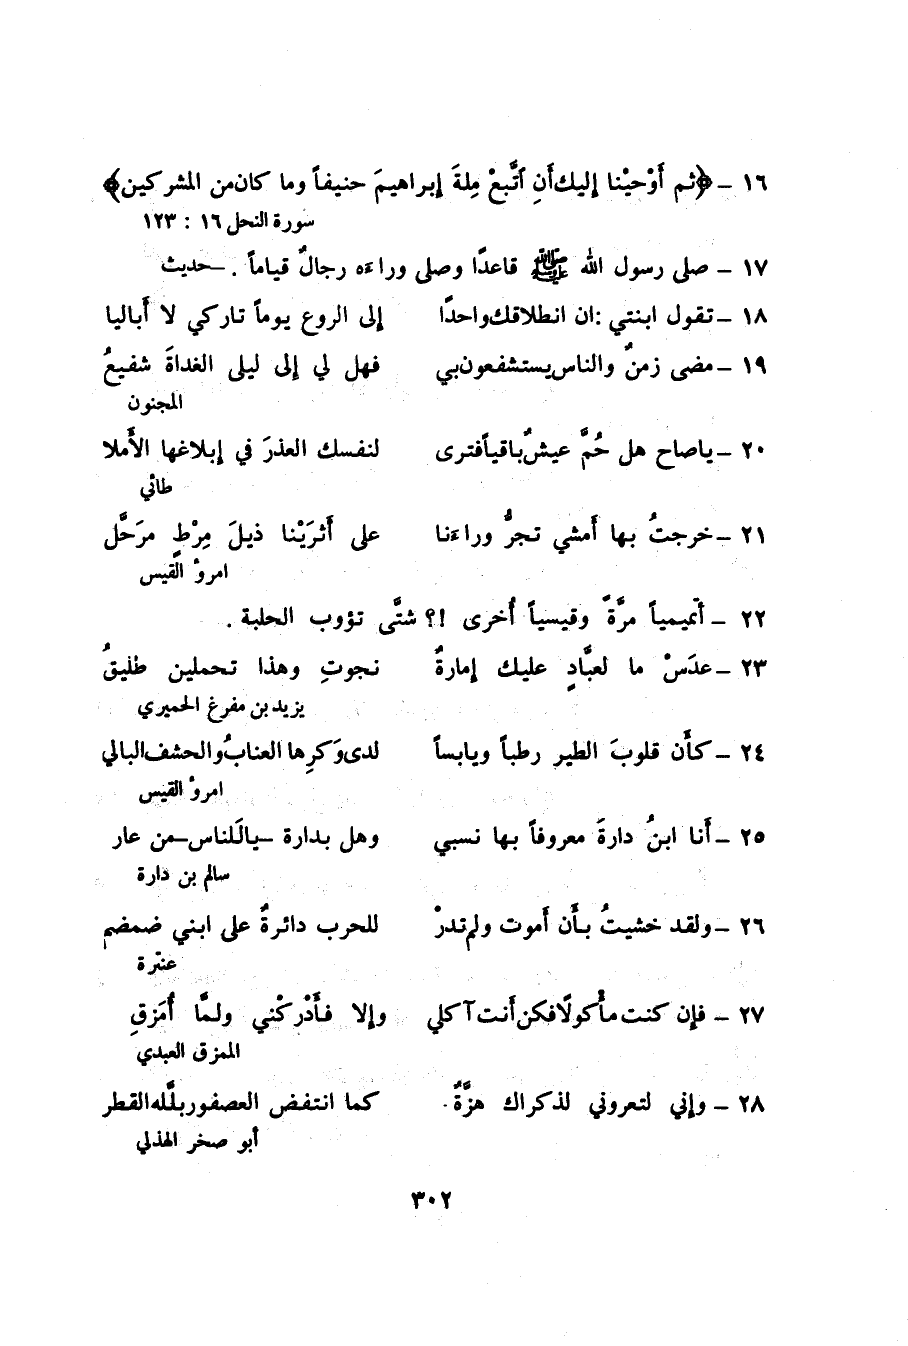 ١٦ – ﴿ثم أَوْحيْنا إليك أَنِ اَتَّبعْ مِلةَ إبراهيمَ حنيفاً وما كان من المشركين﴾
سورة النحل ١٦ : ١٢٣
١٧ – صلى رسول الله ﷺ قاعدًا وصلى وراءه رجالٌ قياماً . – حديث
١٨ – تقول ابنتي : ان انطلاقك واحدًا إلى الروع يوماً تاركي لا أَباليا
١٩ – مضى زمنٌ والناس يستشفعون بي فهل لي إلى ليلى الغداةَ شفيعُ
المجنون
٢٠ – ياصاح هل حُمَّ عيشٌ باقياً فترى لنفسك العذرَ في إبلاغها الأَملا
طائي
٢١ – خرجتُ بها أَمشي تجرُّ وراءنا على أَثرَيْنا ذيلَ مِرْطٍ مرَحَّل
امرؤ القيس
٢٢ – أتميمياً مرَّةً وقيسياً أُخرى !؟ شتَّى تؤوب الحلبة .
٢٣ – عدَسْ ما لعبَّادٍ عليك إمارةٌ نجوتِ وهذا تحملين طليقُ
يزيد بن مفرغ الحميري
٢٤ – كأَن قلوبَ الطير رطباً ويابساً لدى وَكرِها العنابُ والحشف البالي
امرؤ القيس
٢٥ – أَنا ابنُ دارةَ معروفاً بها نسبي وهل بدارة – يا لَلناس – من عار
سالم بن دارة
٢٦ – ولقد خشيتُ بأَن أَموت ولم تدرْ للحرب دائرةٌ على ابني ضمضم
عنترة
٢٧ – فإن كنت مأْكولًا فكن أَنت آكلي وإلا فأَدْركْني ولمَّا أُمَزقِ
الممزق العبدي
٢٨ – وإني لتعروني لذكراك هزَّةٌ كما انتفض العصفور بلَّله القطر
أبو صخر الهذلي
٣٠٢